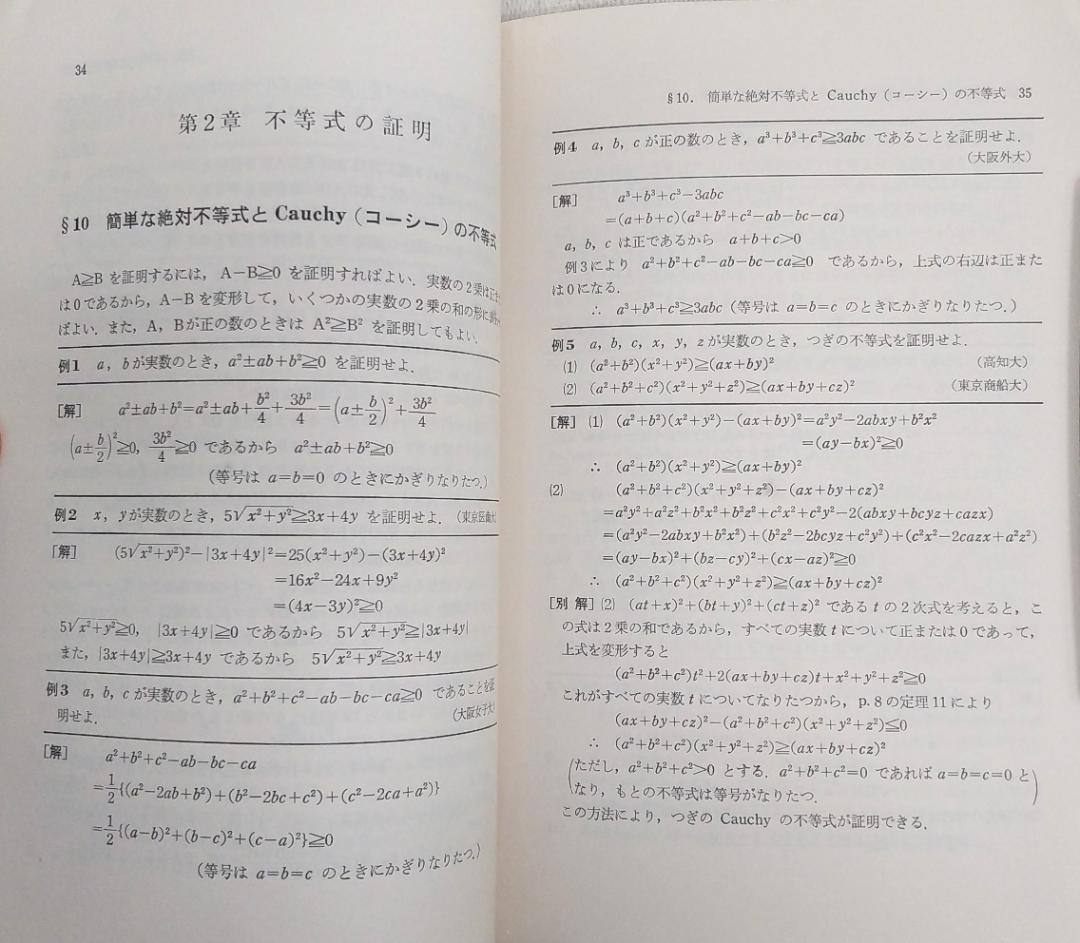 34
第2章 不等式の証明
§10 簡単な絶対不等式と Cauchy（コーシー）の不等式
A≧B を証明するには，A−B≧0 を証明すればよい．実数の2乗は正
は0であるから，A−B を変形して，いくつかの実数の2乗の和の形に
ばよい．また，A，Bが正の数のときは A²≧B² を証明してもよい．
例1 a，b が実数のとき，a²±ab+b²≧0 を証明せよ．
［解］ a²±ab+b²=a²±ab+b²/4+3b²/4=(a±b/2)²+3b²/4
(a±b/2)²≧0, 3b²/4≧0 であるから a²±ab+b²≧0
（等号は a=b=0 のときにかぎりなりたつ．）
例2 x，y が実数のとき，5√(x²+y²)≧3x+4y を証明せよ．（東京医歯大
［解］ (5√(x²+y²))²−|3x+4y|²=25(x²+y²)−(3x+4y)²
=16x²−24x+9y²
=(4x−3y)²≧0
5√(x²+y²)≧0, |3x+4y|≧0 であるから 5√(x²+y²)≧|3x+4y|
また，|3x+4y|≧3x+4y であるから 5√(x²+y²)≧3x+4y
例3 a，b，c が実数のとき，a²+b²+c²−ab−bc−ca≧0 であることを証
明せよ．（大阪女子大）
［解］ a²+b²+c²−ab−bc−ca
=1/2{(a²−2ab+b²)+(b²−2bc+c²)+(c²−2ca+a²)}
=1/2{(a−b)²+(b−c)²+(c−a)²}≧0
（等号は a=b=c のときにかぎりなりたつ．）
§10． 簡単な絶対不等式と Cauchy（コーシー）の不等式 35
例4 a，b，c が正の数のとき，a³+b³+c³≧3abc であることを証明せよ．
（大阪外大）
［解］ a³+b³+c³−3abc
=(a+b+c)(a²+b²+c²−ab−bc−ca)
a，b，c は正であるから a+b+c>0
例3により a²+b²+c²−ab−bc−ca≧0 であるから，上式の右辺は正また
は0になる．
∴ a³+b³+c³≧3abc（等号は a=b=c のときにかぎりなりたつ．）
例5 a，b，c，x，y，z が実数のとき，つぎの不等式を証明せよ．
(1) (a²+b²)(x²+y²)≧(ax+by)² （高知大）
(2) (a²+b²+c²)(x²+y²+z²)≧(ax+by+cz)² （東京商船大）
［解］ (1) (a²+b²)(x²+y²)−(ax+by)²=a²y²−2abxy+b²x²
=(ay−bx)²≧0
∴ (a²+b²)(x²+y²)≧(ax+by)²
(2) (a²+b²+c²)(x²+y²+z²)−(ax+by+cz)²
=a²y²+a²z²+b²x²+b²z²+c²x²+c²y²−2(abxy+bcyz+cazx)
=(a²y²−2abxy+b²x²)+(b²z²−2bcyz+c²y²)+(c²x²−2cazx+a²z²)
=(ay−bx)²+(bz−cy)²+(cx−az)²≧0
∴ (a²+b²+c²)(x²+y²+z²)≧(ax+by+cz)²
［別 解］ (2) (at+x)²+(bt+y)²+(ct+z)² である t の2次式を考えると，こ
の式は2乗の和であるから，すべての実数 t について正または0であって，
上式を変形すると
(a²+b²+c²)t²+2(ax+by+cz)t+x²+y²+z²≧0
これがすべての実数 t についてなりたつから，p.8の定理11により
(ax+by+cz)²−(a²+b²+c²)(x²+y²+z²)≦0
∴ (a²+b²+c²)(x²+y²+z²)≧(ax+by+cz)²
（ただし，a²+b²+c²>0 とする．a²+b²+c²=0 であれば a=b=c=0 と
なり，もとの不等式は等号がなりたつ．）
この方法により，つぎの Cauchy の不等式が証明できる．